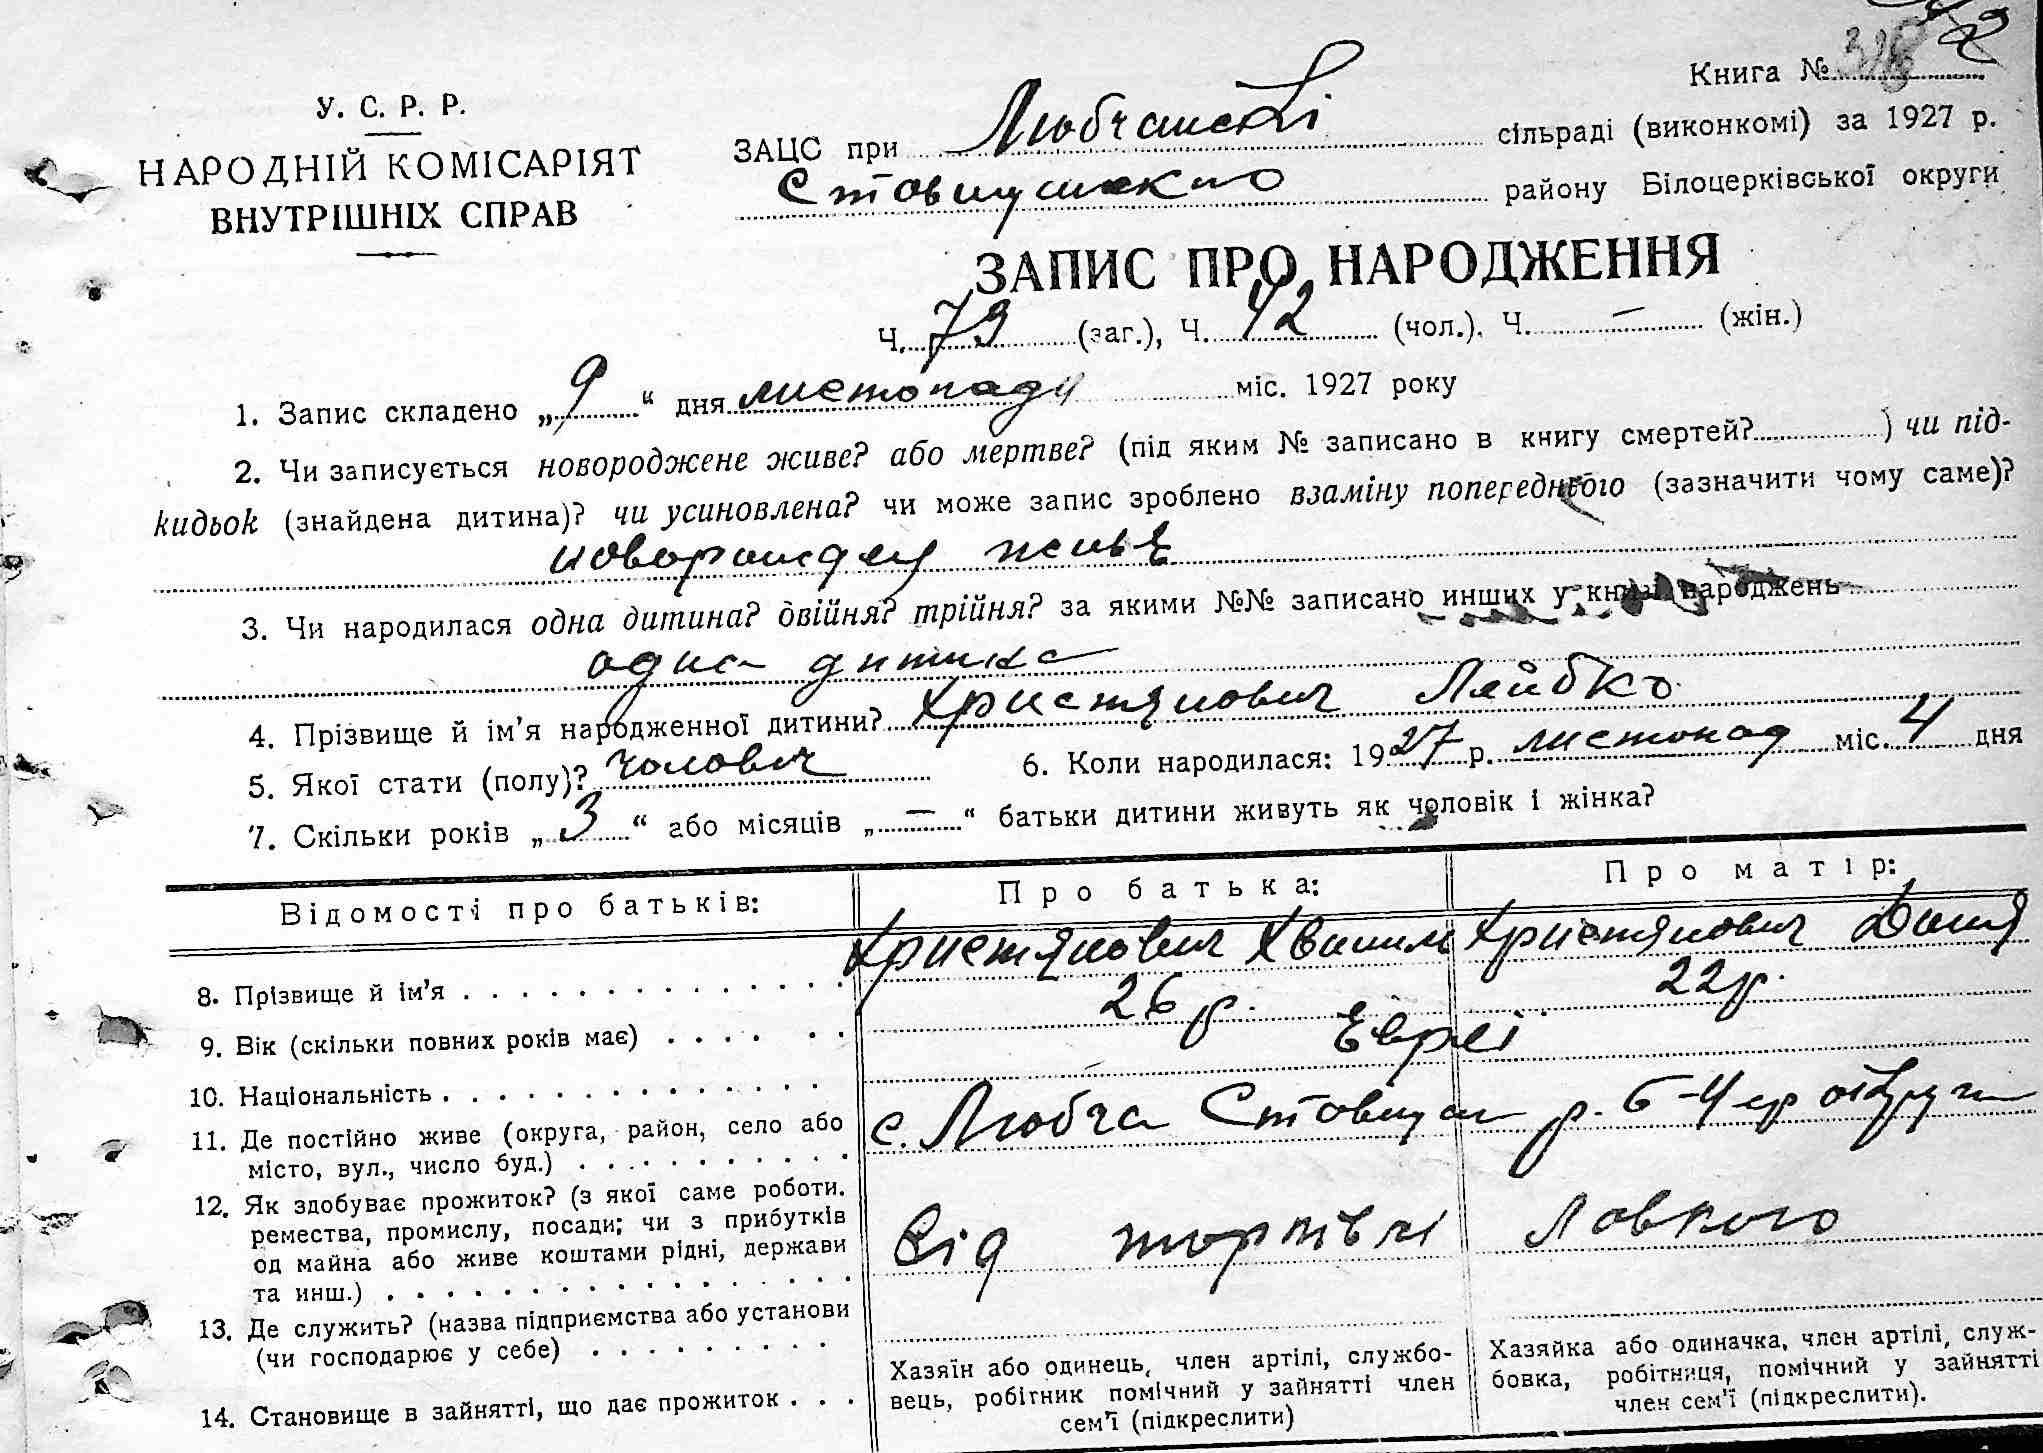 Книга №
У. С. Р. Р.
НАРОДНІЙ КОМІСАРІЯТ
ВНУТРІШНІХ СПРАВ
ЗАЦС при Любчанські сільраді (виконкомі) за 1927 р.
району Білоцерківської округи
ЗАПИС ПРО НАРОДЖЕННЯ
Ч. 79 (заг.), Ч. 42 (чол.), Ч. — (жін.)
1. Запис складено „9“ дня листопаду міс. 1927 року
2. Чи записується новороджене живе? або мертве? (під яким № записано в книгу смертей? ) чи під-
кидьок (знайдена дитина)? чи усиновлена? чи може запис зроблено взаміну попереднього (зазначити чому саме)?
живе
3. Чи народилася одна дитина? двійня? трійня? за якими №№ записано инших у книзі народжень
одна дитина
4. Прізвище й ім'я народженної дитини? Християнович Лейбко
5. Якої стати (полу)? чолович 6. Коли народилася: 1927 р. листопад міс. 4 дня
7. Скільки років „3“ або місяців „—“ батьки дитини живуть як чоловік і жінка?
Відомості про батьків: Про батька: Про матір:
8. Прізвище й ім'я Християнович Християнович
9. Вік (скільки повних років має) 26 р. 22 р.
10. Національність Євреї
11. Де постійно живе (округа, район, село або
місто, вул., число буд.) с. Любча р. Б-Цер округи
12. Як здобуває прожиток? (з якої саме роботи.
ремества, промислу, посади; чи з прибутків
од майна або живе коштами рідні, держави
та инш.) Від торгівлі
13. Де служить? (назва підприємства або установи
(чи господарює у себе)
14. Становище в зайнятті, що дає прожиток
Хазяїн або одинець, член артілі, службо-
вець, робітник помічний у зайнятті член
сем'ї (підкреслити)
Хазяйка або одиначка, член артілі, служ-
бовка, робітниця, помічний у зайнятті
член сем'ї (підкреслити).